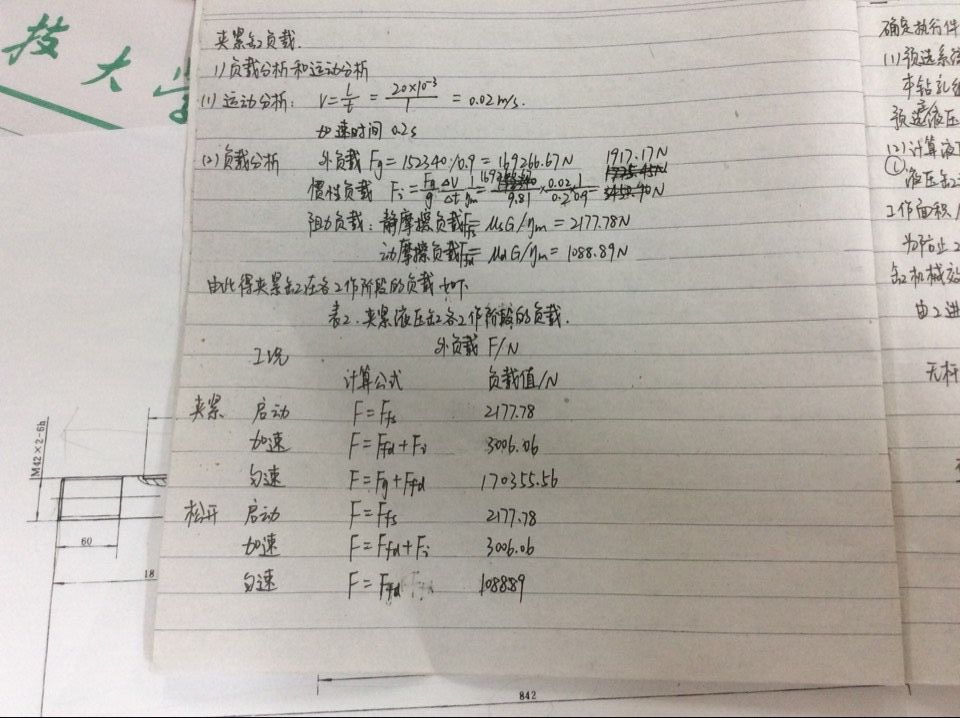 技大学
夹紧缸负载.
1)负载分析和运动分析
(1) 运动分析: V=L/t = 20×10⁻³/1 = 0.02m/s.
加速时间 0.2s
(2)负载分析 外负载 Fg=152340/0.9=169266.67N
1917.17N
惯性负载 Fi=Fg/g ΔV/Δt 1/ηm= 9.81 ×0.02/0.2 1/0.9= N
阻力负载: 静摩擦负载Ffs= μsG/ηm=2177.78N
动摩擦负载Ffd= μdG/ηm=1088.89N
由此得夹紧缸在各工作阶段的负载如下
表2.夹紧液压缸各工作阶段的负载.
工况 外负载 F/N
计算公式 负载值/N
夹紧 启动 F=Ffs 2177.78
加速 F=Ffd+Fi 3006.06
匀速 F=Fg+Ffd 170355.56
松开 启动 F=Ffs 2177.78
加速 F=Ffd+Fi 3006.06
匀速 F=Ffd 1088.89
确定执行件
(1)预选系统
本钻孔组
预选液压
(2)计算液压
①
液压缸
工作面积
为防止
缸机械效
由工进
无杆
M42×2-6h
60
18
842